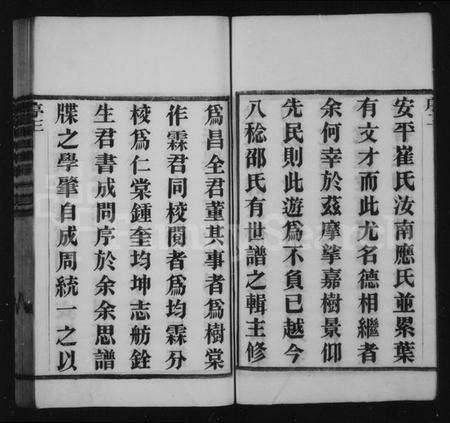 安平崔氏汝南應氏並累葉
有文才而此尤名德相繼者
余何幸於茲摩挲嘉樹景仰
先民則此遊爲不負已越今
八稔邵氏有世譜之輯主修
爲昌全君董其事者爲樹棠
作霖君同校閱者爲均霖分
校爲仁棠鍾奎均坤志舫銓
生君書成問序於余余思譜
牒之學肇自成周統一之以
序三